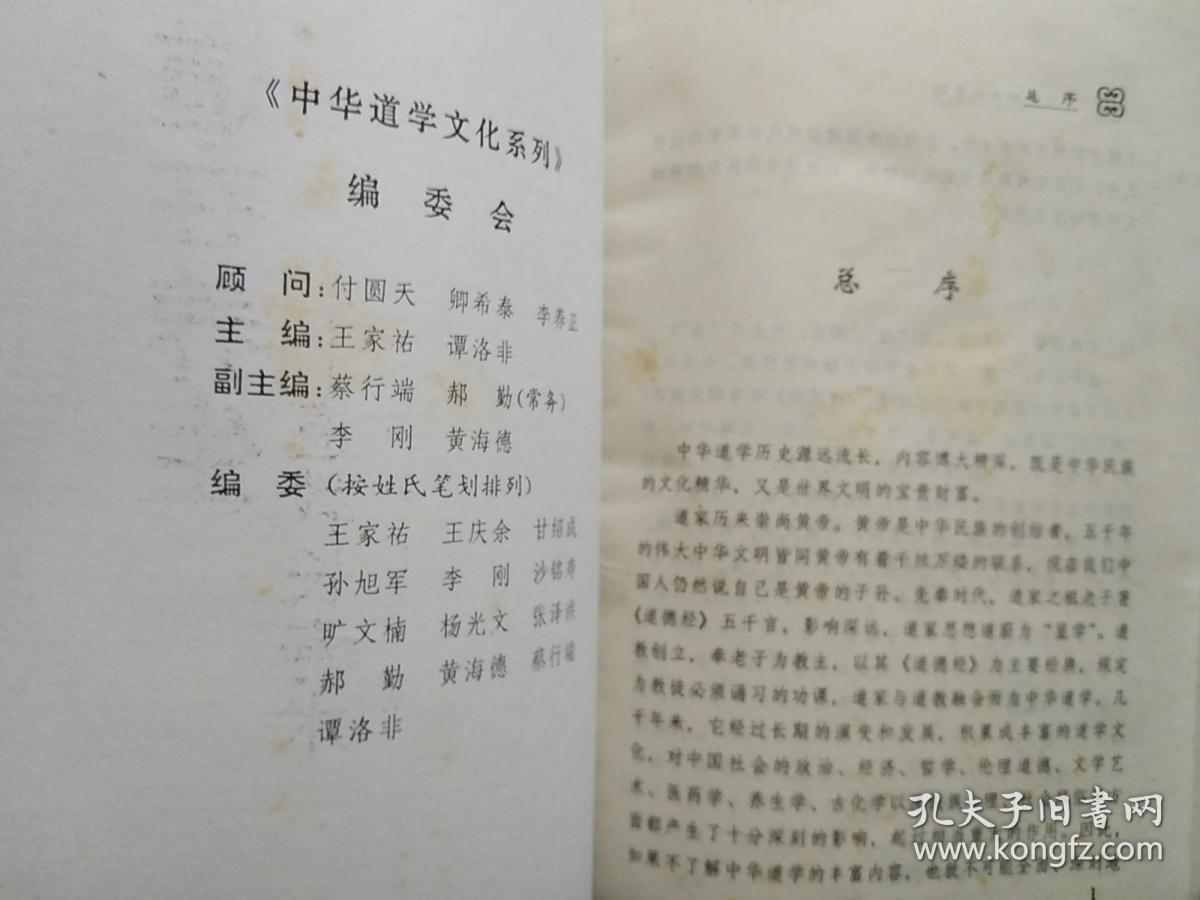 《中华道学文化系列》
编 委 会
顾 问:付圆天 卿希泰 李养正
主 编:王家祐 谭洛非
副主编:蔡行端 郝 勤(常务)
李 刚 黄海德
编 委(按姓氏笔划排列)
王家祐 王庆余 甘绍成
孙旭军 李 刚 沙铭寿
旷文楠 杨光文 张泽洪
郝 勤 黄海德 蔡行端
谭洛非
总 序
总 序
中华道学历史源远流长,内容博大精深,既是中华民族
的文化精华,又是世界文明的宝贵财富。
道家历来崇尚黄帝。黄帝是中华民族的创始者,五千年
的伟大中华文明皆同黄帝有着千丝万缕的联系,现在我们中
国人仍然说自己是黄帝的子孙。先秦时代,道家之祖老子著
《道德经》五千言,影响深远,道家思想遂蔚为“显学”。道
教创立,奉老子为教主,以其《道德经》为主要经典,规定
为教徒必须诵习的功课,道家与道教融合而为中华道学。几
千年来,它经过长期的演变和发展,积累成丰富的道学文
化,对中国社会的政治、经济、哲学、伦理道德、文学艺
术、医药学、养生学、古化学以
面都产生了十分深刻的影响,起过相当重 的作用。因此,
如果不了解中华道学的丰富内容,也就不可能全面、深刻地
1
孔夫子旧书网
www.kongfz.com